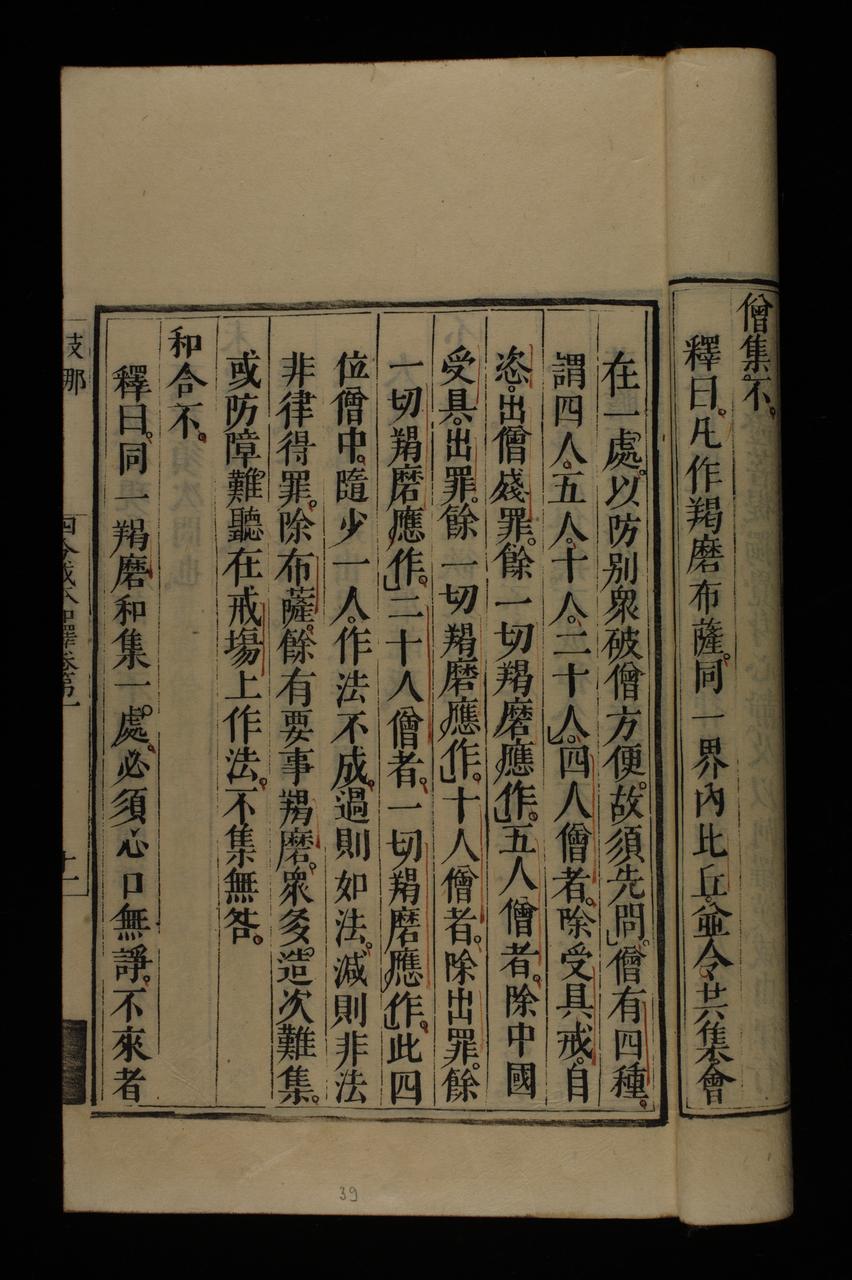 僧集不。
釋曰。凡作羯磨布薩。同一界內比丘。並令共集會
在一處。以防別衆破僧方便。故須先問。僧有四種。
謂四人。五人。十人。二十人。四人僧者。除受具戒。自
恣。出僧殘罪。餘一切羯磨應作。五人僧者。除中國
受具。出罪。餘一切羯磨應作。十人僧者。除出罪。餘
一切羯磨應作。二十人僧者。一切羯磨應作。此四
位僧中。隨少一人。作法不成。過則如法。減則非法
非律得罪。除布薩。餘有要事羯磨。衆多造次難集。
或防障難聽在戒場上作法。不集無咎。
和合不。
釋曰。同一羯磨和集一處。必須心口無諍。不來者
支那
四分戒本如釋卷第一
十一
39